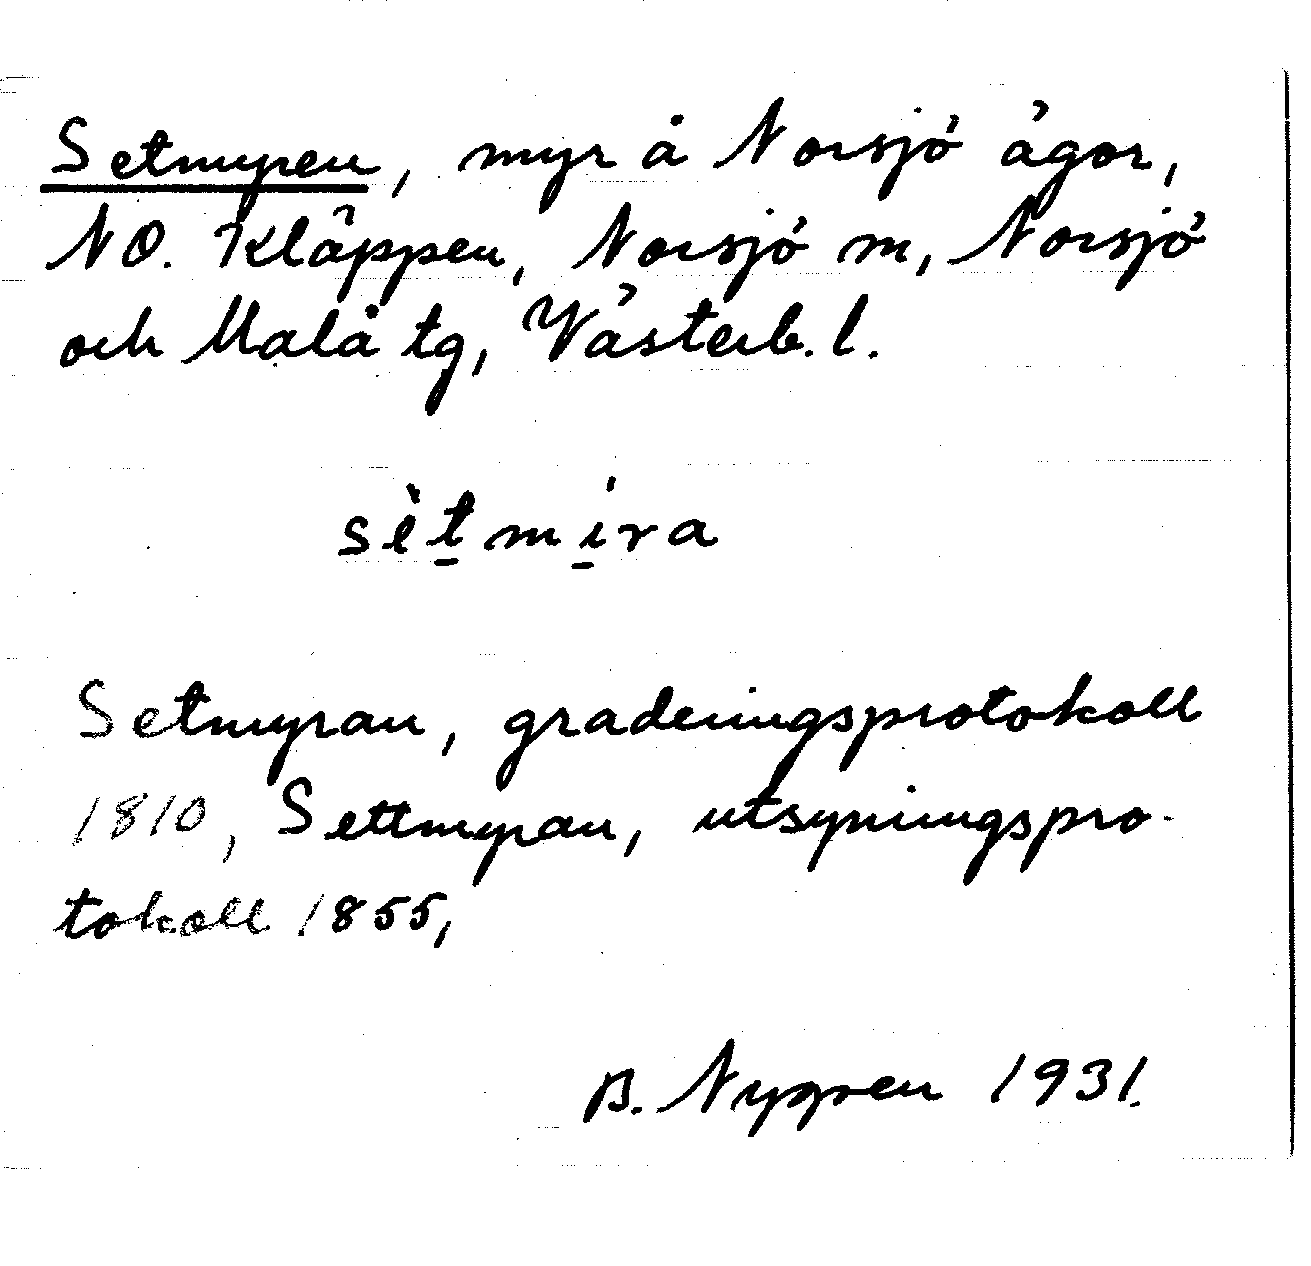 Setmyren, myr å Norsjö ägor,
NO. Kläppen, Norsjö m, Norsjö
och Malå tg, Västerb. l.
sètmíra
Setmyran, graderingsprotokoll
1810, Settmyran, utsyningspro-
tokoll 1855,
B. Nygren 1931.